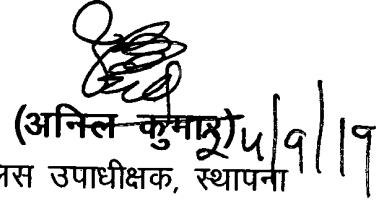 (अनिल कुमार) 24/9/19
लिस उपाधीक्षक, स्थापना